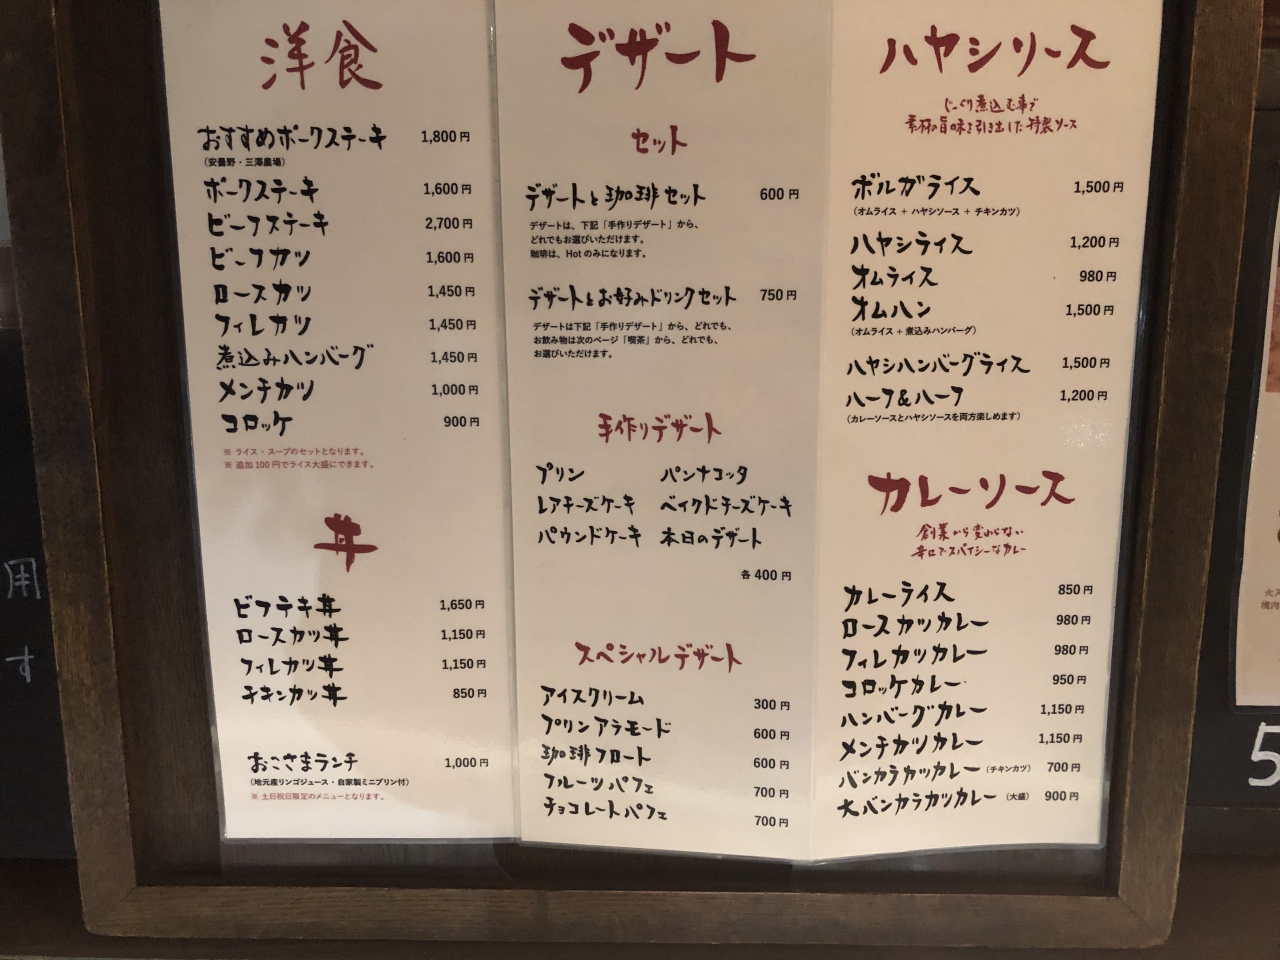 洋食
おすすめポークステーキ 1,800円
（安曇野・三澤農場）
ポークステーキ 1,600円
ビーフステーキ 2,700円
ビーフカツ 1,600円
ロースカツ 1,450円
フィレカツ 1,450円
煮込みハンバーグ 1,450円
メンチカツ 1,000円
コロッケ 900円
※ ライス・スープのセットとなります。
※ 追加100円でライス大盛にできます。
丼
ビフテキ丼 1,650円
ロースカツ丼 1,150円
フィレカツ丼 1,150円
チキンカツ丼 850円
おこさまランチ 1,000円
（地元産リンゴジュース・自家製ミニプリン付）
※ 土日祝日限定のメニューとなります。
デザート
セット
デザートと珈琲セット 600円
デザートは、下記「手作りデザート」から、
どれでもお選びいただけます。
珈琲は、Hotのみになります。
デザートとお好みドリンクセット 750円
デザートは下記「手作りデザート」から、どれでも、
お飲み物は次のページ「喫茶」から、どれでも、
お選びいただけます。
手作りデザート
プリン パンナコッタ
レアチーズケーキ ベイクドチーズケーキ
パウンドケーキ 本日のデザート
各400円
スペシャルデザート
アイスクリーム 300円
プリンアラモード 600円
珈琲フロート 600円
フルーツパフェ 700円
チョコレートパフェ 700円
ハヤシソース
じっくり煮込む事で
素材の旨味を引き出した特製ソース
ボルガライス 1,500円
（オムライス + ハヤシソース + チキンカツ）
ハヤシライス 1,200円
オムライス 980円
オムハン 1,500円
（オムライス + 煮込みハンバーグ）
ハヤシハンバーグライス 1,500円
ハーフ&ハーフ 1,200円
（カレーソースとハヤシソースを両方楽しめます）
カレーソース
創業から変わらない
辛口でスパイシーなカレー
カレーライス 850円
ロースカツカレー 980円
フィレカツカレー 980円
コロッケカレー 950円
ハンバーグカレー 1,150円
メンチカツカレー 1,150円
バンカラカツカレー（チキンカツ） 700円
大バンカラカツカレー（大盛） 900円
用
す
5